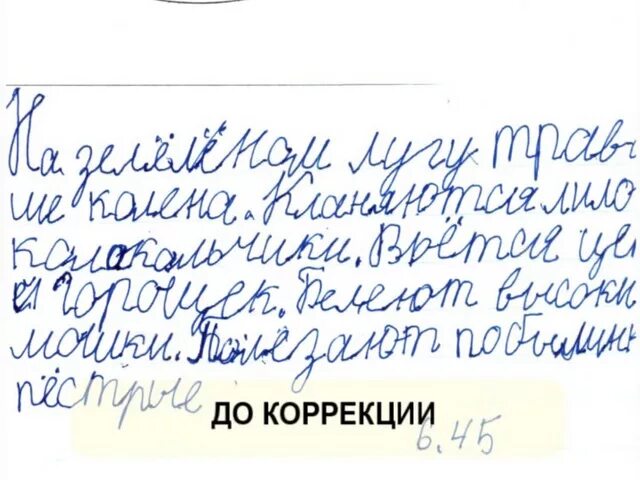 На зелёлёном лугу трав
ше колена. Кланяются лило
колокольчики. Вьётся це
й горошек. Белеют высоки
мошки. Полезают по былинк
пёстрые
ДО КОРРЕКЦИИ
6.45